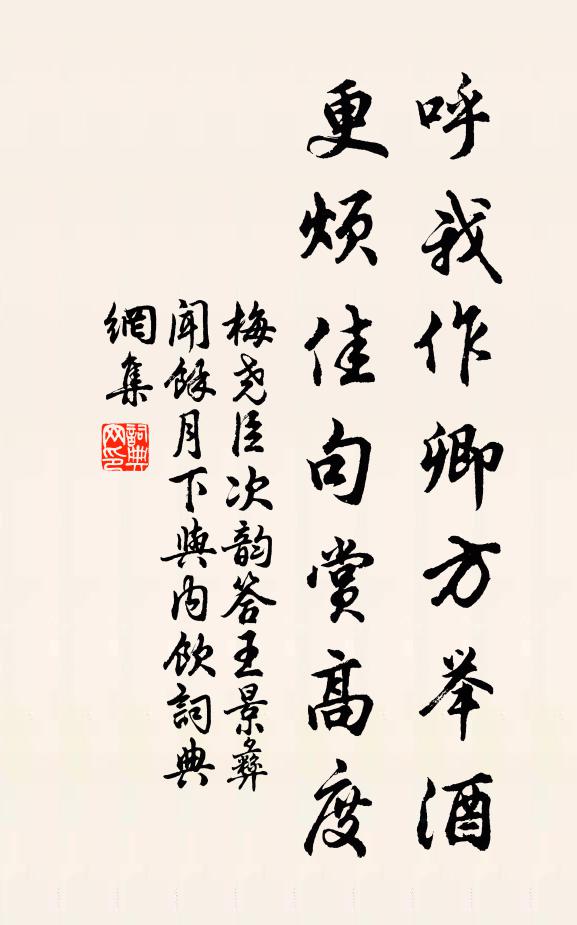 呼我作卿方举酒
更烦佳句赏高度
梅尧臣次韵答王景彝
闻馀月下与内饮词典
網集
詞典
网印